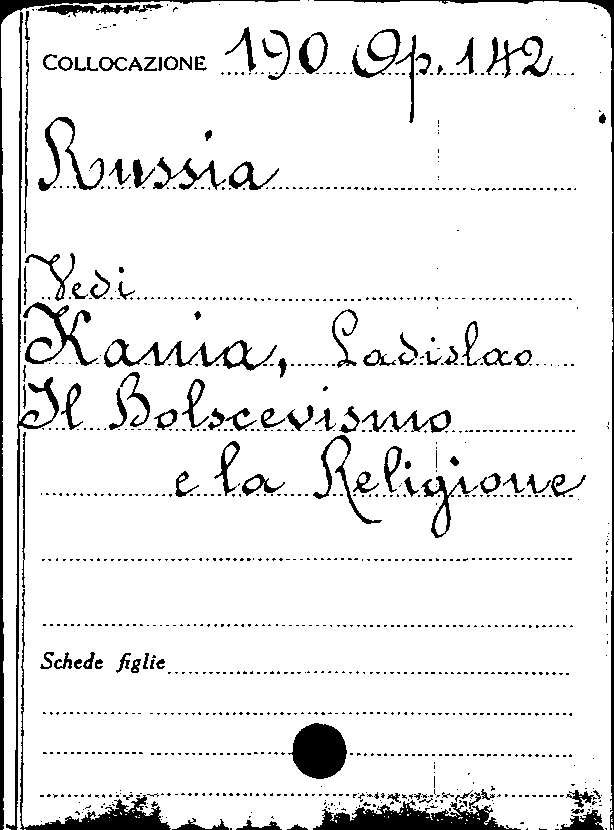 COLLOCAZIONE 190 Op. 142
Russia
Vedi
Kania, Ladislao
Il Bolscevismo
e la Religione
Schede figlie